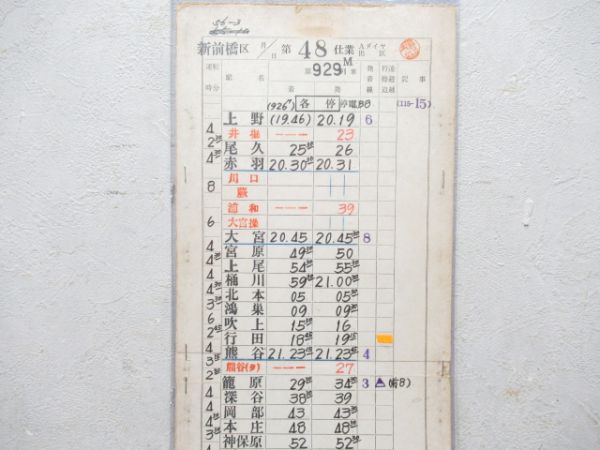 56-3
新前橋区 月/日 第 48 仕業 Aダイヤ 出区
第 929M 列車
運転時分 駅名 着 発 着発線 記事
(926M) 各停 停電88 (115-15)
上野 (19.46) 20.19 6
4 井堀 --- 23
2 尾久 25 26
4 赤羽 20.30 20.31
川口
8 蕨
浦和 --- 39
6 大宮操
大宮 20.45 20.45 8
4 宮原 49 50
4 上尾 54 55
4 桶川 59 21.00
4 北本 05 05
3 鴻巣 09 09
6 吹上 15 16
2 行田 18 19
4 熊谷 21.23 21.23 4
3 熊谷(タ) --- 27
2 籠原 29 34 3 (前8)
4 深谷 38 39
4 岡部 43 43
4 本庄 48 48
3 神保原 52 52